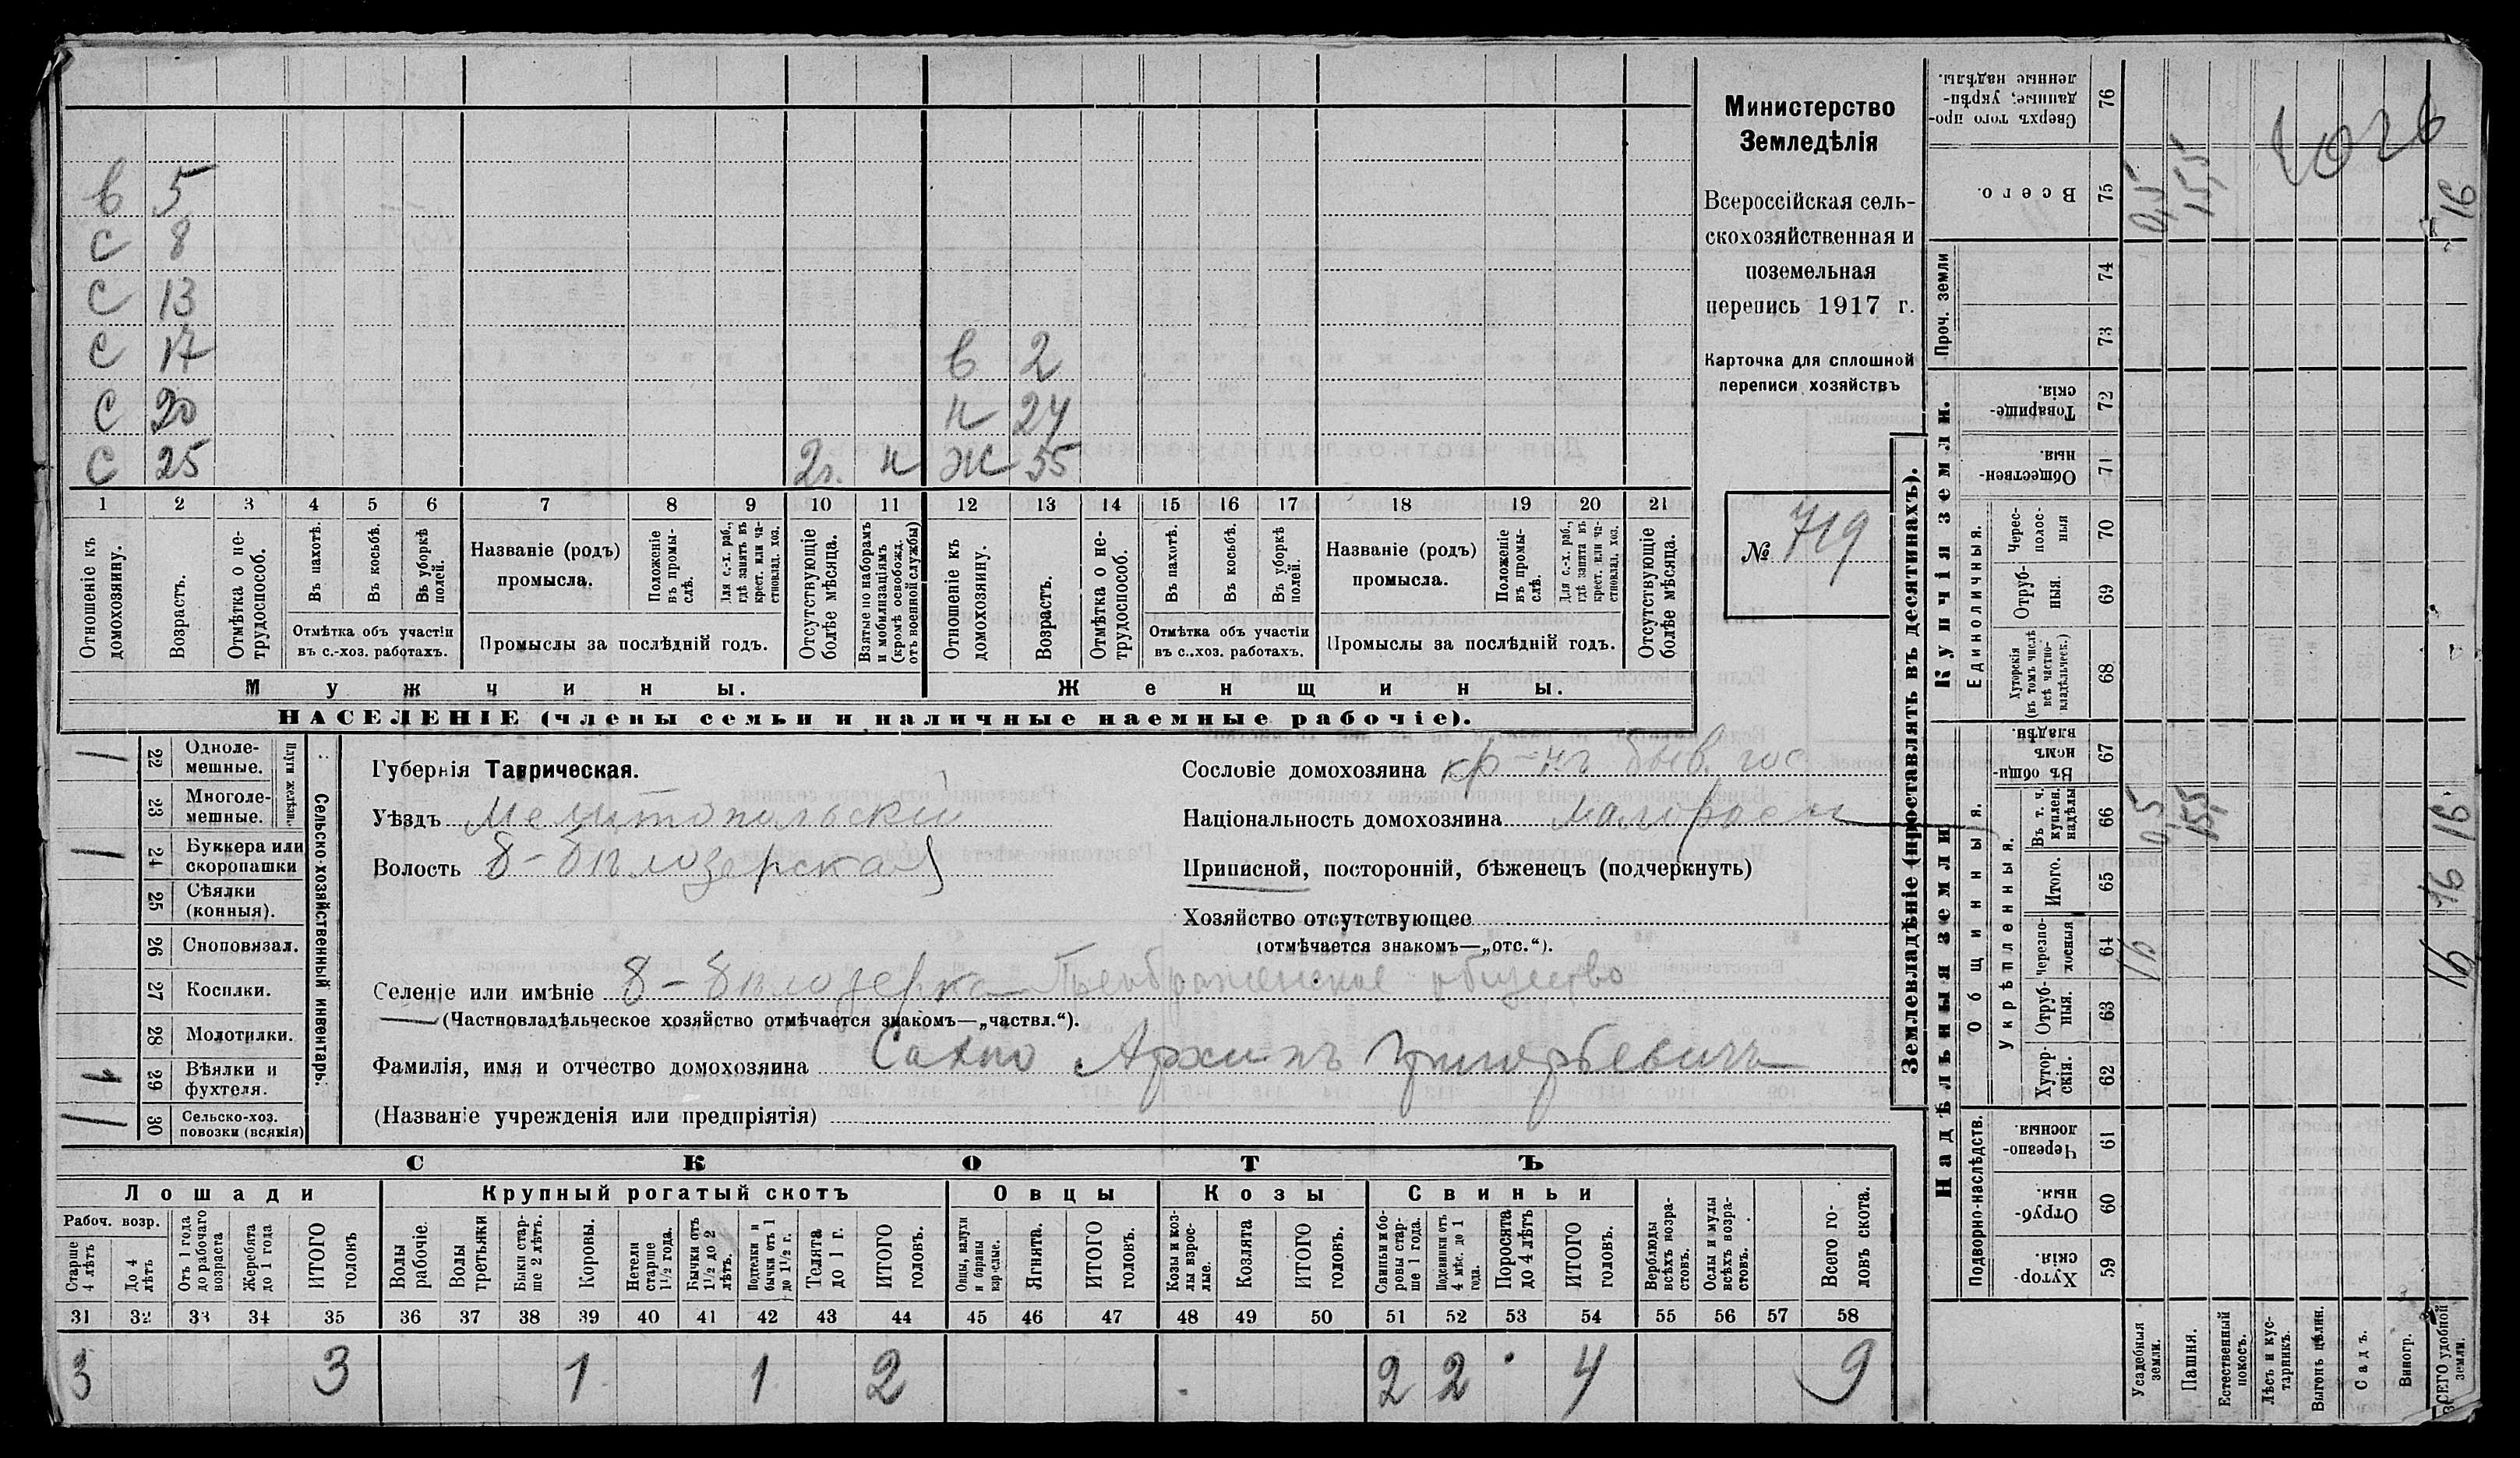 в 5
с 8
с 13
с 17 в 2
с 20 н 24
с 25 2г. н Ж 55
1 2 3 4 5 6 7 8 9 10 11 12 13 14 15 16 17 18 19 20 21
Отношеніе къ домохозяину.
Возрастъ.
Отмѣтка о нетрудоспособ.
Въ пахотѣ.
Въ косьбѣ.
Въ уборкѣ полей.
Отмѣтка объ участіи въ с.-хоз. работахъ.
Названіе (родъ) промысла.
Положеніе въ промыслѣ.
Для с.-х. раб., гдѣ занятъ въ крест. или частновлад. хоз.
Промыслы за послѣдній годъ.
Отсутствующіе болѣе мѣсяца.
Взятые по наборамъ и мобилизаціямъ (кромѣ освобожд. отъ военной службы)
Отношеніе къ домохозяину.
Возрастъ.
Отмѣтка о нетрудоспособ.
Въ пахотѣ.
Въ косьбѣ.
Въ уборкѣ полей.
Отмѣтка объ участіи въ с.-хоз. работахъ.
Названіе (родъ) промысла.
Положеніе въ промыслѣ.
Для с.-х. раб., гдѣ занята въ крест. или частновлад. хоз.
Промыслы за послѣдній годъ.
Отсутствующіе болѣе мѣсяца.
Мужчины. Женщины.
НАСЕЛЕНІЕ (члены семьи и наличные наемные рабочіе).
Министерство
Земледѣлія
Всероссійская сель-
скохозяйственная и
поземельная
перепись 1917 г.
Карточка для сплошной
переписи хозяйствъ
№ 719
Сельско-хозяйственный инвентарь.
Плуги желѣзн.
1 22 Одноле-мешные.
23 Многоле-мешные.
1 24 Буккера или скоропашки
25 Сѣялки (конныя).
26 Сноповязал.
27 Косилки.
28 Молотилки.
1 29 Вѣялки и фухтеля.
1 30 Сельско-хоз. повозки (всякія)
Губернія Таврическая.
Уѣздъ Мелитопольскій
Волость Б-Бѣлозерская
Сословіе домохозяина кр-нъ быв. гос
Національность домохозяина малоросс
Приписной, посторонній, бѣженецъ (подчеркнуть)
Хозяйство отсутствующее
(отмѣчается знакомъ—„отс.“).
Селеніе или имѣніе Б-Бѣлозерка Преображенское общество
(Частновладѣльческое хозяйство отмѣчается знакомъ—„частвл.“).
Фамилія, имя и отчество домохозяина Сахно Архипъ Григорьевичъ
(Названіе учрежденія или предпріятія)
СКОТЪ
Лошади Крупный рогатый скотъ Овцы Козы Свиньи
Рабоч. возр.
Старше 4 лѣтъ
До 4 лѣтъ
Отъ 1 года до рабочаго возраста
Жеребята до 1 года
ИТОГО головъ
Волы рабочіе.
Волы третьяки
Быки старше 2 лѣтъ.
Коровы.
Нетели старше 1 1/2 года.
Бычки отъ 1 1/2 до 2 лѣтъ.
Подтелки и бычки отъ 1 до 1 1/2 г.
Телята до 1 г.
ИТОГО головъ.
Овцы, валухи и бараны взрослые.
Ягнята.
ИТОГО головъ.
Козы и козлы взрослые.
Козлята
ИТОГО головъ.
Свиньи и боровы старше 1 года.
Подсвинки отъ 4 мѣс. до 1 года.
Поросята до 4 лѣтъ
ИТОГО головъ.
Верблюды всѣхъ возрастовъ.
Ослы и мулы всѣхъ возрастовъ.
Всего головъ скота.
31 32 33 34 35 36 37 38 39 40 41 42 43 44 45 46 47 48 49 50 51 52 53 54 55 56 57 58
3 3 1 1 2 2 2 4 9
Землевладѣніе (проставлять въ десятинахъ).
Надѣльныя земли
Купчія земли.
Проч. земли
Подворно-наслѣдств.
Общинныя.
Укрѣпленныя.
Единоличныя.
Сверхъ того проданные, укрѣпленные надѣлы. 76
Всего. 75 0,5 15,5 16
74
73
Товарищескія. 72
Общественныя. 71
Чересполосныя 70
Отрубныя. 69
Хуторскія (въ томъ числѣ всѣ частновладѣльческ.) 68
Въ общинномъ владѣн. 67
Въ т. ч. куплен. надѣлы 66 0,5 15,5 16
Итого. 65 16
Черезполосныя 64
Отрубныя. 63
Хуторскія. 62
Черезполосныя. 61
Отрубныя. 60
Хуторскія. 59
Усадебныя земли.
Пашня.
Естественный покосъ.
Лѣсъ и кустарникъ.
Выгонъ цѣлин.
Садъ.
Виногр.
ВСЕГО удобной земли.